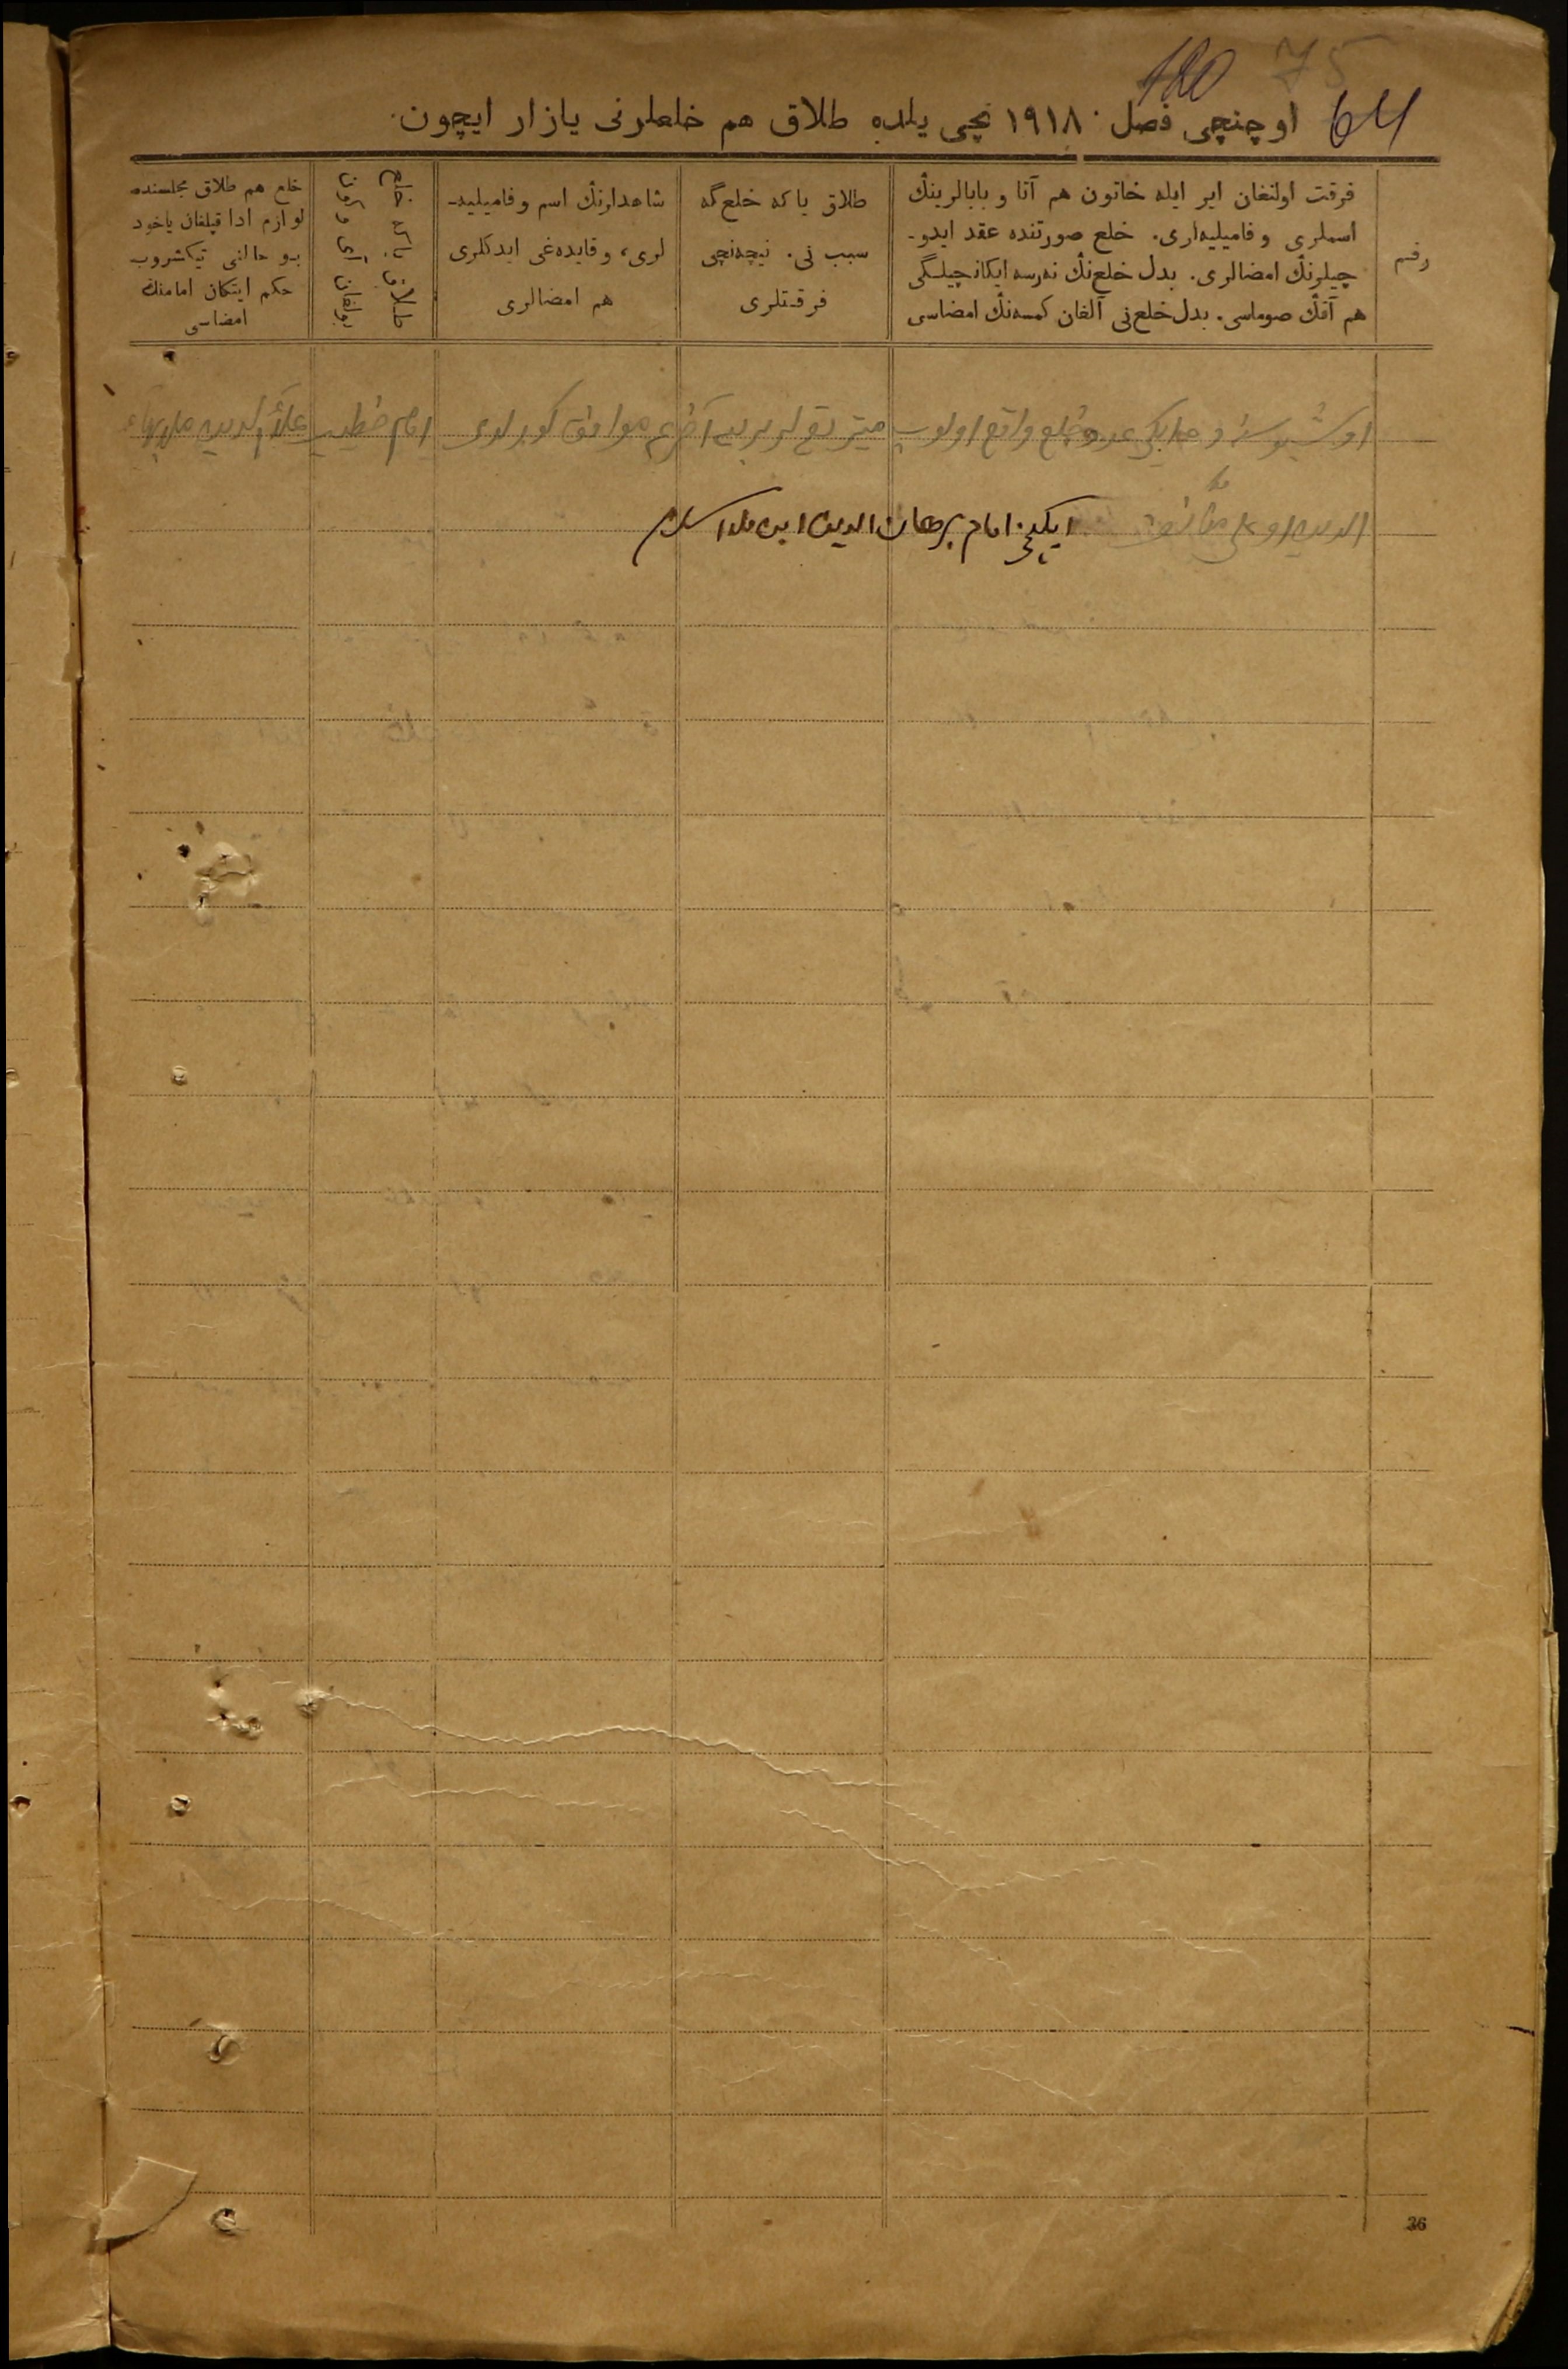 180 75
64 اوچنچی فصل ۱۹۱۸ نچی یلده طلاق هم خلعلرنی یازار ایچون.
رقم
فرقت اولنغان ایر ایله خاتون هم آتا و بابالرینڭ
اسملری و فامیلیه‌لری. خلع صورتنده عقد ایدو-
چیلرنڭ امضالری. بدل خلع‌نڭ نه‌رسه ایکانچیلگی
هم آنڭ صوماسی. بدل خلع‌نی آلغان کمسه‌نڭ امضاسی
طلاق یا که خلع گه
سبب نی. نیچه‌نچی
فرقتلری
شاهدلرنڭ اسم و فامیلیه-
لری، و قایده‌غی ایدکلری
هم امضالری
طلاق یا که خلع
بولغان آی و کون
خلع هم طلاق مجلسنده
لوازم ادا قیلغان یاخود
بو حالنی تیکشروب
حکم ایتکان امامنڭ
امضاسی
اوشبو سنه‌ده ایکی عدد خلع واقع اولوب متریقه‌لر بربینه آخرغه موافق کورلدی امام خطیب علاء‌الدین ملا بهاء
الدین اوغلی
ایکنچی امام برهان الدین ابن ملا اسلام
36